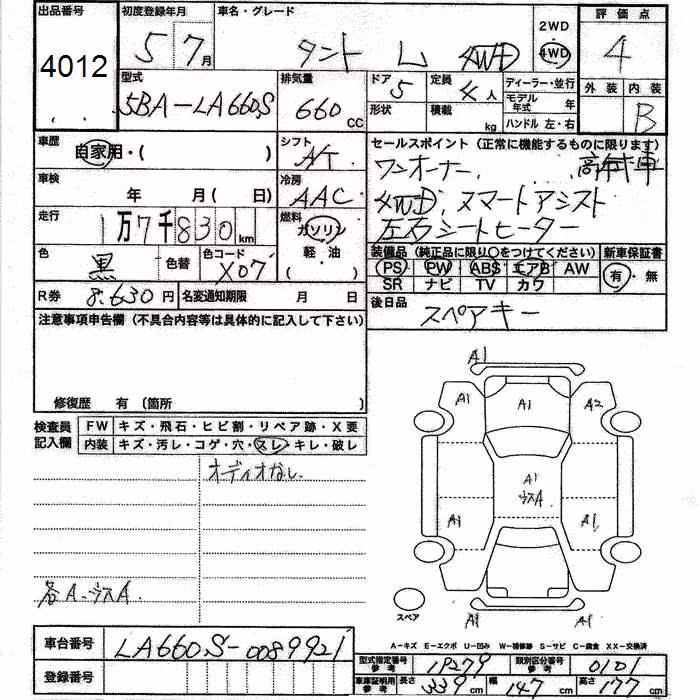 出品番号 4012
初度登録年月 5 7月
車名・グレード タント L 4WD
2WD
4WD
評価点 4
外装 内装 B
型式 5BA-LA660S
排気量 660 CC
ドア 5
定員 4人
形状
積載 kg
ディーラー・並行
モデル年式 年
ハンドル 左・右
車歴 自家用・( )
シフト AT
セールスポイント (正常に機能するものに限ります)
ワンオーナー
4WD、スマートアシスト
左右シートヒーター
車検 年 月( 日)
冷房 AAC
走行 1万7千830km
燃料 ガソリン
軽・油
( ・ )
色 黒
色替
色コード X07
装備品 (純正品に限り○をつけてください)
新車保証書
PS PW ABS エアB AW
有・無
SR ナビ TV カワ
R券 8,630円
名変通知期限 月 日
後日品 スペアキー
注意事項申告欄 (不具合内容等は具体的に記入して下さい)
修復歴 有 (箇所 )
検査員記入欄
FW キズ・飛石・ヒビ割・リペア跡・X要
内装 キズ・汚レ・コゲ・穴・スレ・キレ・破レ
オーディオなし
各A・ウスA
A1
A1 A1 A2
A1
ウスA
A1 A1
A1 A1
スペア
A-キズ E-エクボ U-凹み W-補修跡 S-サビ C-腐食 XX-交換済
車台番号 LA660S-0089921
登録番号
型式指定番号 参考 19279
類別区分番号 参考 0101
車庫証明用 参考 長さ 339 cm 幅 147 cm 高さ 177 cm